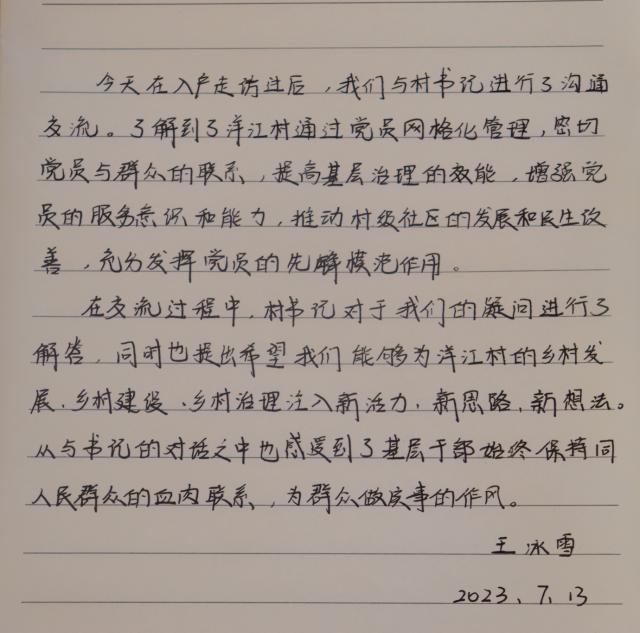 今天在入户走访过后，我们与村书记进行了沟通
交流。了解到了洋江村通过党员网格化管理，密切
党员与群众的联系，提高基层治理的效能，增强党
员的服务意识和能力，推动村级社区的发展和民生改
善，充分发挥党员的先锋模范作用。
在交流过程中，村书记对于我们的疑问进行了
解答，同时也提出希望我们能够为洋江村的乡村发
展、乡村建设、乡村治理注入新活力，新思路，新想法。
从与书记的对话之中也感受到了基层干部始终保持同
人民群众的血肉联系，为群众做实事的作风。
王冰雪
2023、7、13